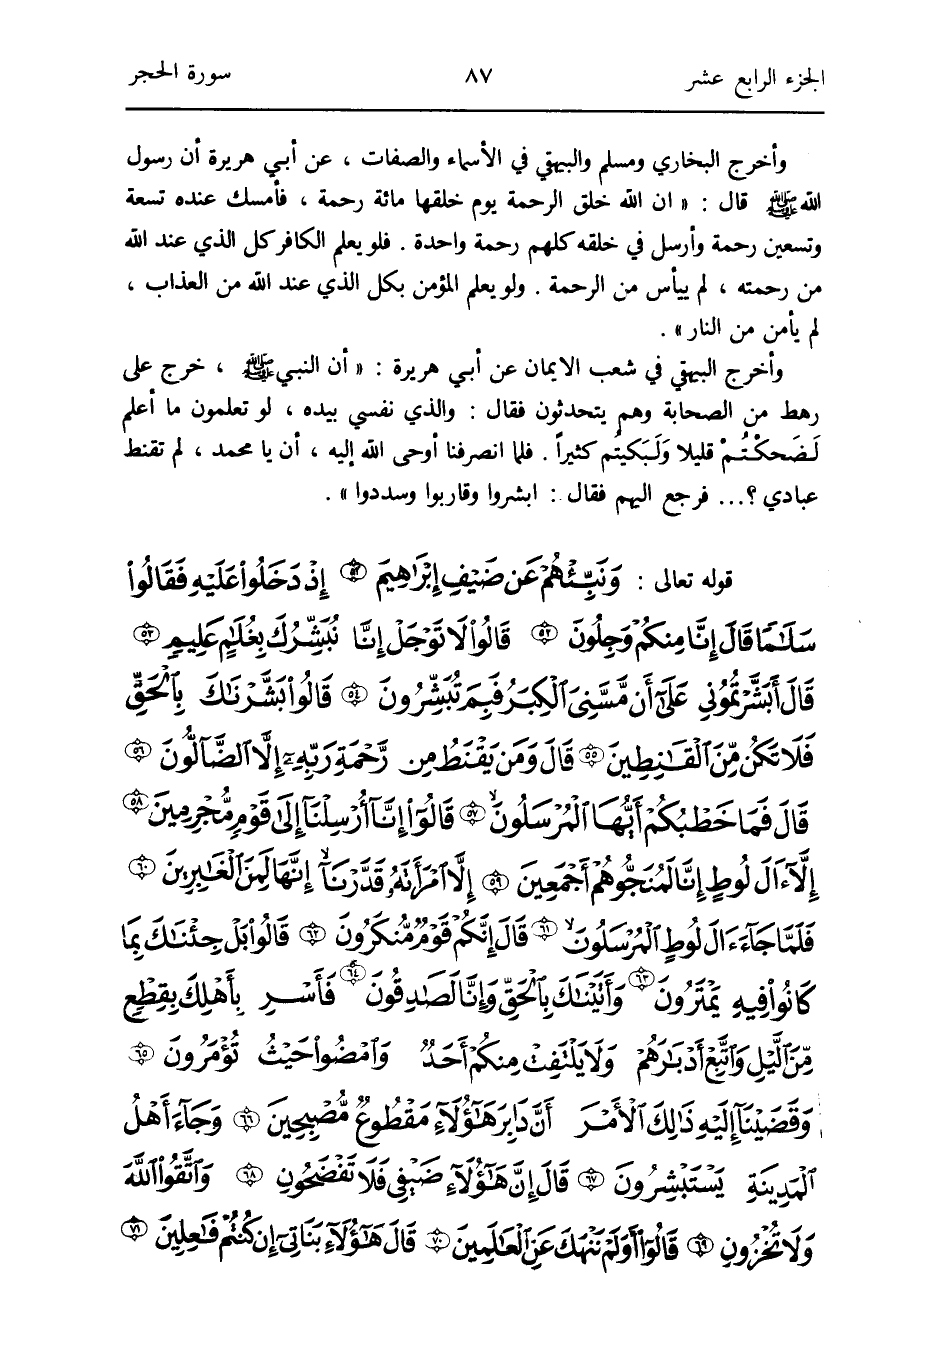 الجزء الرابع عشر ٨٧ سورة الحجر
وأخرج البخاري ومسلم والبيهقي في الأسماء والصفات ، عن أبي هريرة أن رسول
الله ﷺ قال : « ان الله خلق الرحمة يوم خلقها مائة رحمة ، فأمسك عنده تسعة
وتسعين رحمة وأرسل في خلقه كلهم رحمة واحدة . فلو يعلم الكافر كل الذي عند الله
من رحمته ، لم ييأس من الرحمة . ولو يعلم المؤمن بكل الذي عند الله من العذاب ،
لم يأمن من النار » .
وأخرج البيهقي في شعب الايمان عن أبي هريرة : « أن النبي ﷺ ، خرج على
رهط من الصحابة وهم يتحدثون فقال : والذي نفسي بيده ، لو تعلمون ما أعلم
لَضَحكْتُمْ قليلا وَلَبَكيتُم كثيراً . فلما انصرفنا أوحى الله إليه ، أن يا محمد ، لم تقنط
عبادي ؟... فرجع اليهم فقال : ابشروا وقاربوا وسددوا » .
قوله تعالى : وَنَبِّئْهُمْ عَن ضَيْفِ إِبْرَٰهِيمَ ۝٥١ إِذْ دَخَلُوا۟ عَلَيْهِ فَقَالُوا۟
سَلَٰمًا قَالَ إِنَّا مِنكُمْ وَجِلُونَ ۝٥٢ قَالُوا۟ لَا تَوْجَلْ إِنَّا نُبَشِّرُكَ بِغُلَٰمٍ عَلِيمٍ ۝٥٣
قَالَ أَبَشَّرْتُمُونِى عَلَىٰٓ أَن مَّسَّنِىَ ٱلْكِبَرُ فَبِمَ تُبَشِّرُونَ ۝٥٤ قَالُوا۟ بَشَّرْنَٰكَ بِٱلْحَقِّ
فَلَا تَكُن مِّنَ ٱلْقَٰنِطِينَ ۝٥٥ قَالَ وَمَن يَقْنَطُ مِن رَّحْمَةِ رَبِّهِۦٓ إِلَّا ٱلضَّآلُّونَ ۝٥٦
قَالَ فَمَا خَطْبُكُمْ أَيُّهَا ٱلْمُرْسَلُونَ ۝٥٧ قَالُوٓا۟ إِنَّآ أُرْسِلْنَآ إِلَىٰ قَوْمٍ مُّجْرِمِينَ ۝٥٨
إِلَّآ ءَالَ لُوطٍ إِنَّا لَمُنَجُّوهُمْ أَجْمَعِينَ ۝٥٩ إِلَّا ٱمْرَأَتَهُۥ قَدَّرْنَآ إِنَّهَا لَمِنَ ٱلْغَٰبِرِينَ ۝٦٠
فَلَمَّا جَآءَ ءَالَ لُوطٍ ٱلْمُرْسَلُونَ ۝٦١ قَالَ إِنَّكُمْ قَوْمٌ مُّنكَرُونَ ۝٦٢ قَالُوا۟ بَلْ جِئْنَٰكَ بِمَا
كَانُوا۟ فِيهِ يَمْتَرُونَ ۝٦٣ وَأَتَيْنَٰكَ بِٱلْحَقِّ وَإِنَّا لَصَٰدِقُونَ ۝٦٤ فَأَسْرِ بِأَهْلِكَ بِقِطْعٍ
مِّنَ ٱلَّيْلِ وَٱتَّبِعْ أَدْبَٰرَهُمْ وَلَا يَلْتَفِتْ مِنكُمْ أَحَدٌ وَٱمْضُوا۟ حَيْثُ تُؤْمَرُونَ ۝٦٥
وَقَضَيْنَآ إِلَيْهِ ذَٰلِكَ ٱلْأَمْرَ أَنَّ دَابِرَ هَٰٓؤُلَآءِ مَقْطُوعٌ مُّصْبِحِينَ ۝٦٦ وَجَآءَ أَهْلُ
ٱلْمَدِينَةِ يَسْتَبْشِرُونَ ۝٦٧ قَالَ إِنَّ هَٰٓؤُلَآءِ ضَيْفِى فَلَا تَفْضَحُونِ ۝٦٨ وَٱتَّقُوا۟ ٱللَّهَ
وَلَا تُخْزُونِ ۝٦٩ قَالُوٓا۟ أَوَلَمْ نَنْهَكَ عَنِ ٱلْعَٰلَمِينَ ۝٧٠ قَالَ هَٰٓؤُلَآءِ بَنَاتِىٓ إِن كُنتُمْ فَٰعِلِينَ ۝٧١